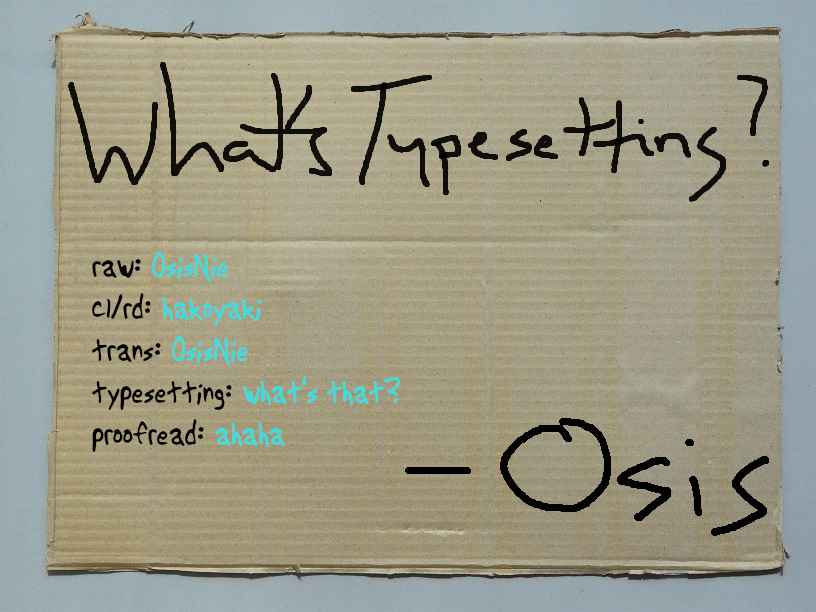 What's Typesetting?
raw: OsisNie
cl/rd: hakoyaki
trans: OsisNie
typesetting: what's that?
proofread: ahaha
- Osis